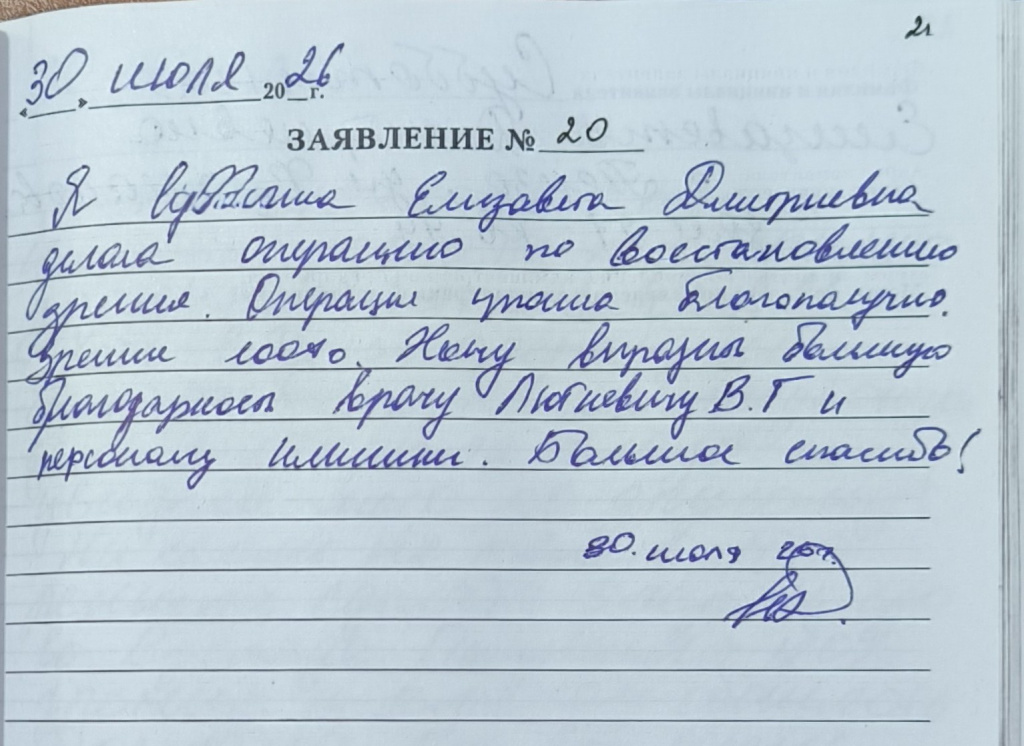 21
«30» июля 2026 г.
ЗАЯВЛЕНИЕ № 20
Я Елизавета Дмитриевна
делала операцию по восстановлению
зрения. Операция прошла благополучно.
Зрение 100%. Хочу выразить большую
благодарность врачу Люткевичу В.Г и
персоналу клиники. Большое спасибо!
30. июля 26г.